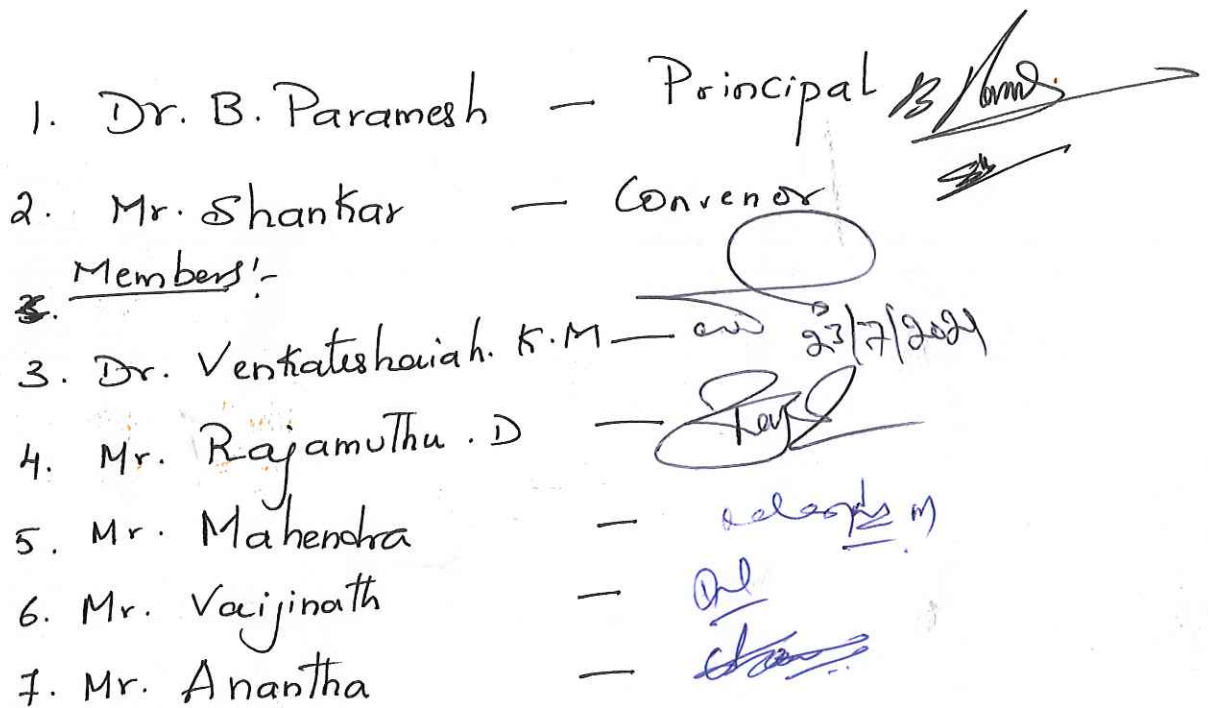 1. Dr. B. Paramesh — Principal
2. Mr. Shankar — Convenor
Members:-
3. Dr. Venkateshaiah. K.M — 23/7/2021
4. Mr. Rajamuthu. D —
5. Mr. Mahendra —
6. Mr. Vaijinath —
7. Mr. Anantha —